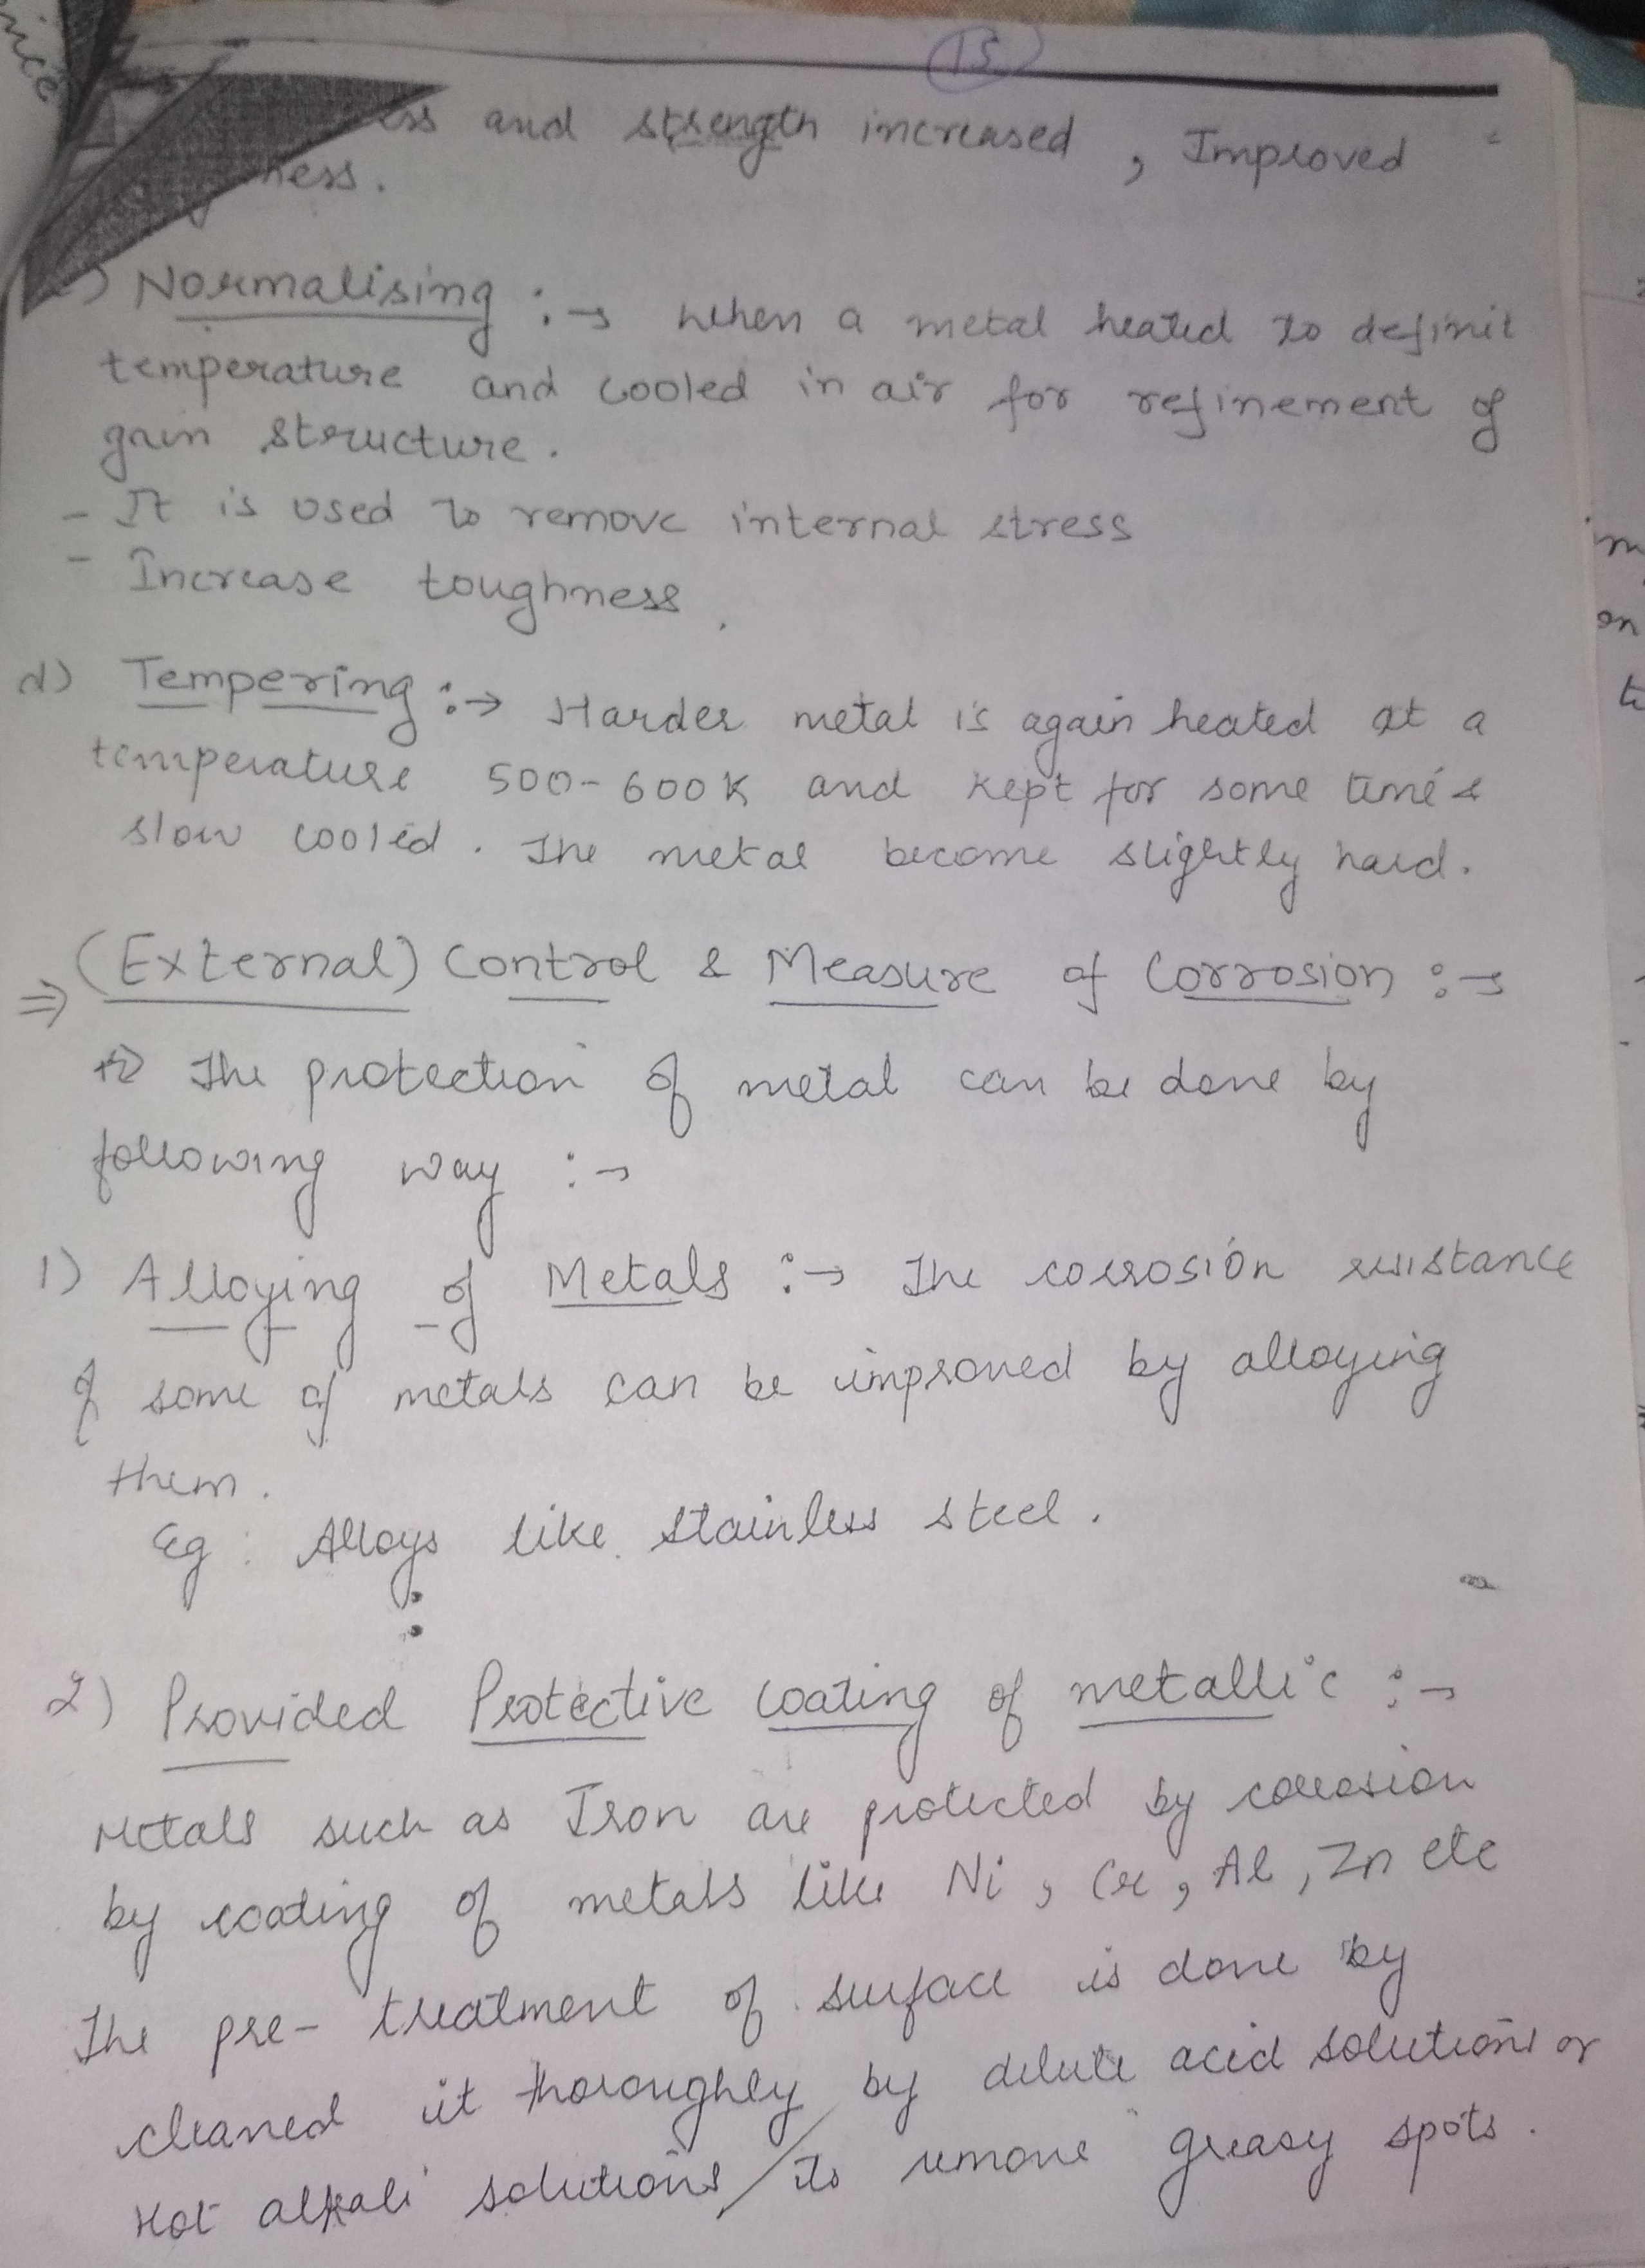 15
and strength increased , Improved
ness.
) Normalising :→ When a metal heated to definit
temperature and cooled in air for refinement of
gain structure.
- It is used to remove internal stress
- Increase toughness.
d) Tempering :→ Harder metal is again heated at a
temperature 500-600K and kept for some time &
slow cooled. The metal become slightly hard.
⇒ (External) Control & Measure of Corrosion :→
The protection of metal can be done by
following way :→
1) Alloying of Metals :→ The corrosion resistance
of some of metals can be improved by alloying
them.
Eg : Alloys like stainless steel.
2) Provided Protective coating of metallic :→
Metals such as Iron are protected by corrosion
by coating of metals like Ni, Cr, Al, Zn etc
The pre-treatment of surface is done by
cleaned it thoroughly by dilute acid solutions or
Hot alkali solutions / to remove greasy spots.